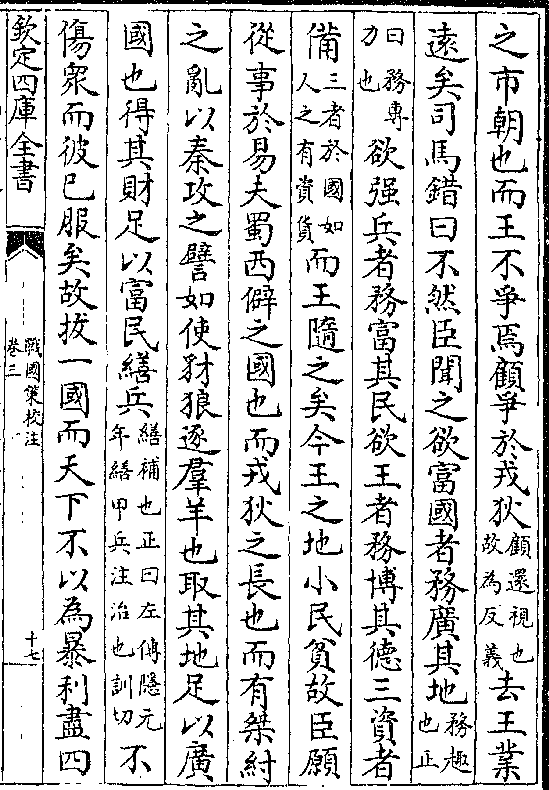 之市朝也而王不爭焉顧爭於戎狄顧還視也故為反義去王業
遠矣司馬錯曰不然臣聞之欲富國者務廣其地務趣也正
曰務專力也欲强兵者務富其民欲王者務博其德三資者
備三者於國如人之有資貨而王隨之矣今王之地小民貧故臣願
從事於易夫蜀西僻之國也而戎狄之長也而有桀紂
之亂以秦攻之譬如使豺狼逐羣羊也取其地足以廣
國也得其財足以富民繕兵繕補也正曰左傳隱元年繕甲兵注治也訓切不
傷衆而彼已服矣故拔一國而天下不以為暴利盡四
欽定四庫全書
戰國策校注
卷三
十七